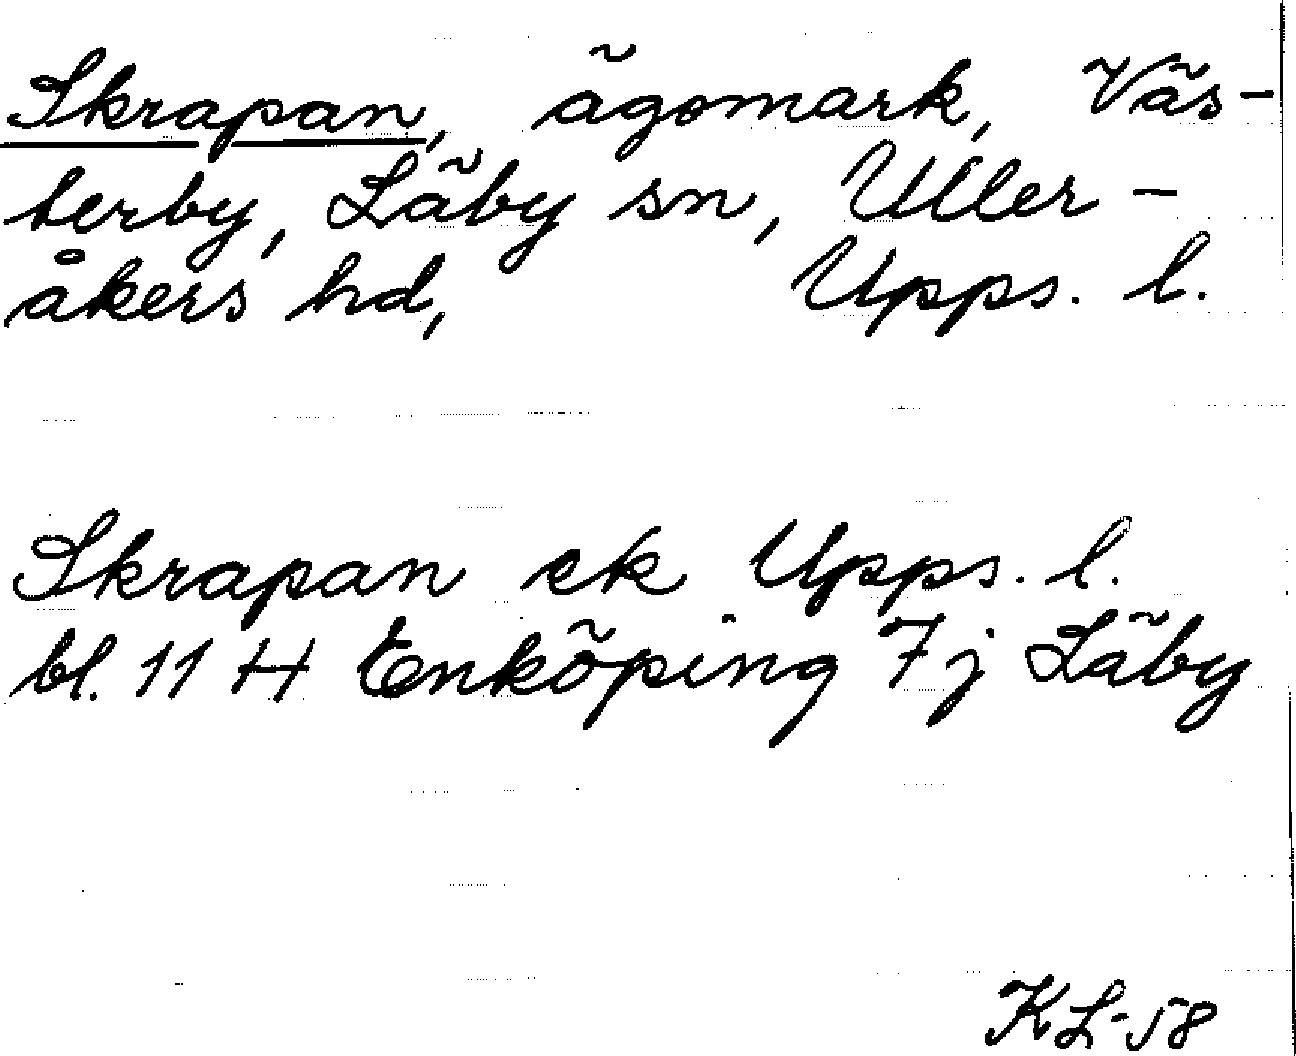 Skrapan, ägomark, Väs-
terby, Läby sn, Uller-
åkers hd, Upps. l.
Skrapan ek Upps. l.
bl. 11 H Enköping 7j Läby
KL-58